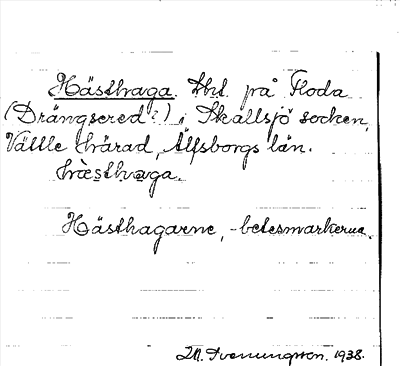 Hästhaga. Hmt. på Floda
(Drängsered?) i Skallsjö socken,
Vättle härad, Älfsborgs län.
hæsthaga.
Hästhagarne, -betesmarkerna.
1938.